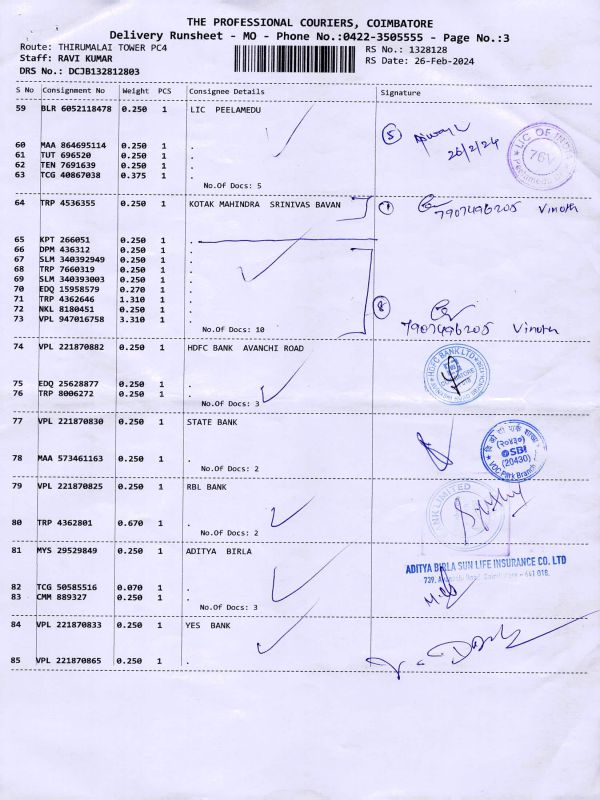 THE PROFESSIONAL COURIERS, COIMBATORE
Delivery Runsheet - MO - Phone No.:0422-3505555 - Page No.:3
Route: THIRUMALAI TOWER PC4
RS No.: 1328128
Staff: RAVI KUMAR
RS Date: 26-Feb-2024
DRS No.: DCJB132812803
S No Consignment No Weight PCS Consignee Details Signature
59 BLR 6052118478 0.250 1 LIC PEELAMEDU
5
26/2/24
LIC OF INDIA
76V
60 MAA 864695114 0.250 1 .
61 TUT 696520 0.250 1 .
62 TEN 7691639 0.250 1 .
63 TCG 40867038 0.375 1 .
No.Of Docs: 5
64 TRP 4536355 0.250 1 KOTAK MAHINDRA SRINIVAS BAVAN
1
7907496205 Vinoth
65 KPT 266051 0.250 1 .
66 DPM 436312 0.250 1 .
67 SLM 340392949 0.250 1 .
68 TRP 7660319 0.250 1 .
69 SLM 340393003 0.250 1 .
70 EDQ 15958579 0.270 1 .
71 TRP 4362646 1.310 1 .
72 NKL 8180451 0.250 1 .
73 VPL 947016758 3.310 1 .
No.Of Docs: 10
8
7907496205 Vinoth
74 VPL 221870882 0.250 1 HDFC BANK AVANCHI ROAD
HDFC BANK LTD
75 EDQ 25628877 0.250 1 .
76 TRP 8006272 0.250 1 .
No.Of Docs: 3
77 VPL 221870830 0.250 1 STATE BANK
(२०४३०)
SBI
(20430)
VOC Park Branch
78 MAA 573461163 0.250 1 .
No.Of Docs: 2
79 VPL 221870825 0.250 1 RBL BANK
BANK LIMITED
80 TRP 4362801 0.670 1 .
No.Of Docs: 2
81 MYS 29529849 0.250 1 ADITYA BIRLA
ADITYA BIRLA SUN LIFE INSURANCE CO. LTD
82 TCG 50585516 0.070 1 .
83 CMM 889327 0.250 1 .
No.Of Docs: 3
84 VPL 221870833 0.250 1 YES BANK
85 VPL 221870865 0.250 1 .